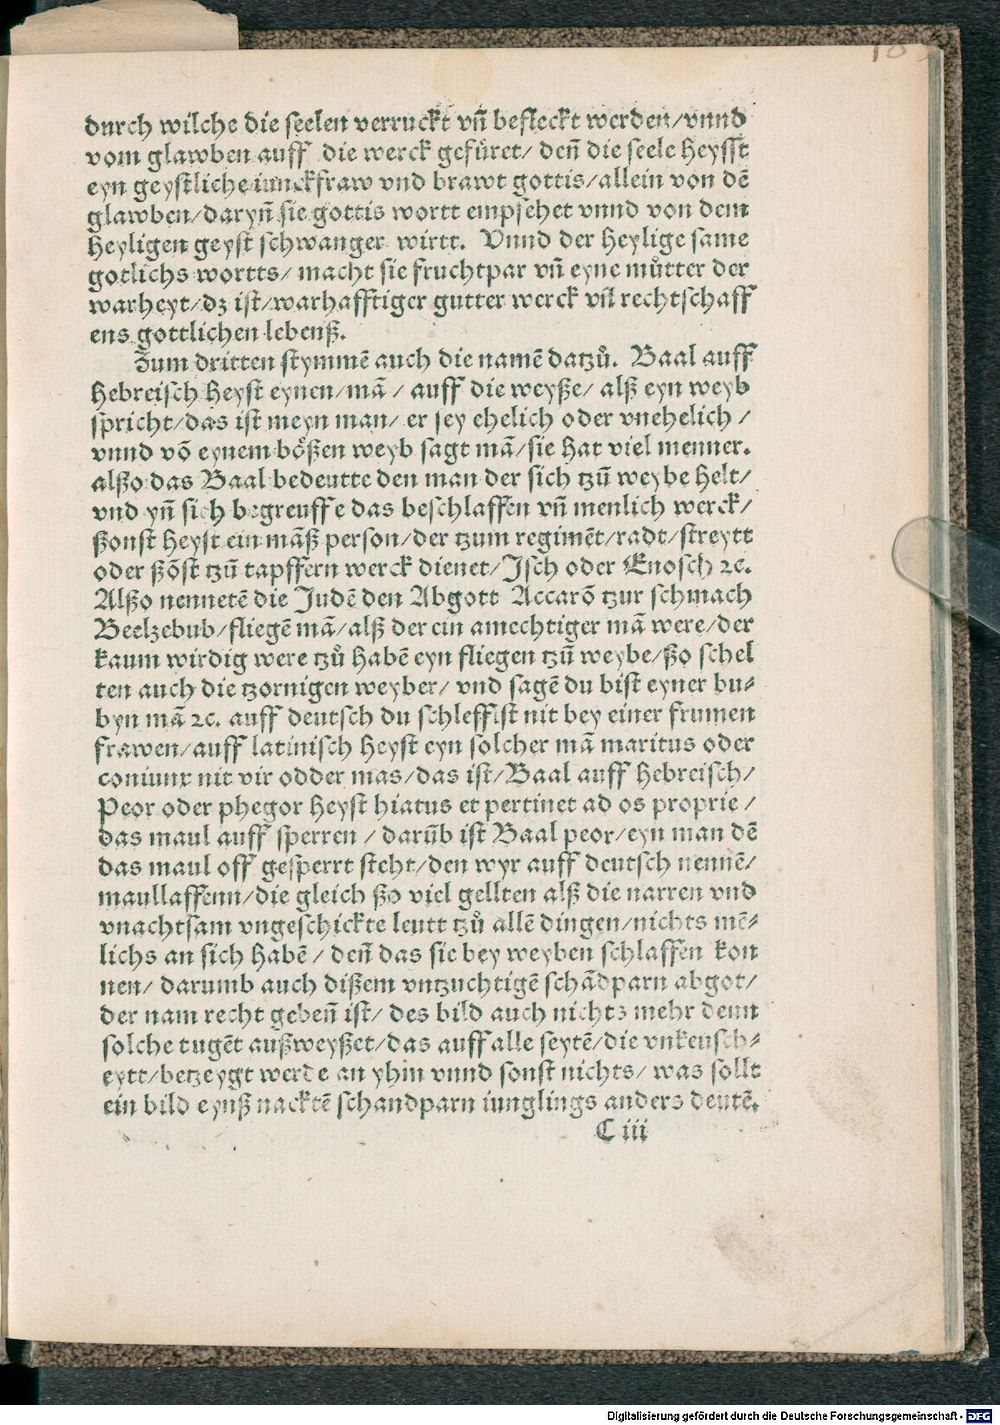 durch wilche die seelen verruckt vn̄ befleckt werden/vnnd
vom glawben auff die werck gefüret/ den̄ die seele heysst
eyn geystliche iunckfraw vnd brawt gottis/allein von dē
glawben/daryn̄ sie gottis wortt empfehet vnnd von dem
heyligen geyst schwanger wirtt. Vnnd der heylige same
gotlichs wortts/ macht sie fruchtpar vn̄ eyne můtter der
warheyt/dz ist/warhafftiger gutter werck vn̄ rechtschaff
ens gottlichen lebenß.
Zum dritten stymmē auch die namē datzů. Baal auff
hebreisch heyst eynen/mā / auff die weyße/ alß eyn weyb
spricht/das ist meyn man/ er sey ehelich oder vnehelich /
vnnd vō eynem bößen weyb sagt mā/sie hat viel menner.
alßo das Baal bedeutte den man der sich tzū weybe helt/
vnd yn̄ sich begreuffe das beschlaffen vn̄ menlich werck/
ßonst heyst ein māß person/der tzum regimēt/radt/streytt
oder ßōst tzū tapffern werck dienet/Isch oder Enosch ꝛc.
Alßo nennetē die Judē den Abgott Accarō tzur schmach
Beelzebub/fliegē mā/alß der ein amechtiger mā were/der
kaum wirdig were tzů habē eyn fliegen tzū weybe/ßo schel
ten auch die tzornigen weyber/ vnd sagē du bist eyner bu⸗
byn mā ꝛc. auff deutsch du schleffist nit bey einer frumen
frawen/auff latinisch heyst eyn solcher mā maritus oder
coniunx nit vir odder mas/das ist/Baal auff hebreisch/
Peor oder phegor heyst hiatus et pertinet ad os proprie /
das maul auff sperren / darūb ist Baal peor/eyn man dē
das maul off gesperrt steht/den wyr auff deutsch nennē/
maullaffenn/die gleich ßo viel gellten alß die narren vnd
vnachtsam vngeschickte leutt tzů allē dingen/nichts mē⸗
lichs an sich habē / den̄ das sie bey weyben schlaffen kon
nen/ darumb auch dißem vntzuchtigē schādparn abgot/
der nam recht geben̄ ist/ des bild auch nichts mehr denn
solche tugēt außweyßet/das auff alle seytē/die vnkeusch⸗
eytt/betzeygt werde an yhm vnnd sonst nichts/ was sollt
ein bild eynß nacktē schandparn iunglings anders deutē.
C iii
Digitalisierung gefördert durch die Deutsche Forschungsgemeinschaft - DFG